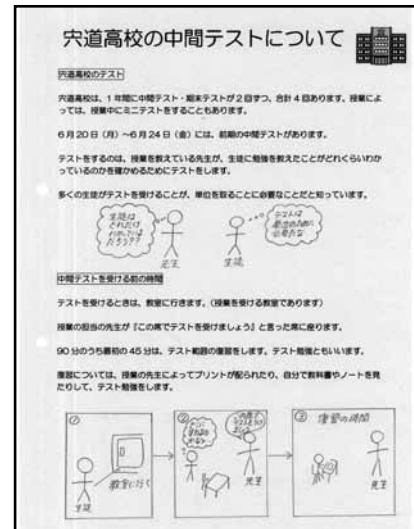 宍道高校の中間テストについて
宍道高校のテスト
宍道高校は、1年間に中間テスト・期末テストが2回ずつ、合計4回あります。授業によ
っては、授業中にミニテストをすることもあります。
6月20日（月）～6月24日（金）には、前期の中間テストがあります。
テストをするのは、授業を教えている先生が、生徒に勉強を教えたことがどれくらいわか
っているのかを確かめるためにテストをします。
多くの生徒がテストを受けることが、単位を取ることに必要なことだと知っています。
生徒は
どれだけ
だろう??
先生
テストは
必要だな
生徒
中間テストを受ける前の時間
テストを受けるときは、教室に行きます。（授業を受ける教室であります）
授業の担当の先生が『この席でテストを受けましょう』と言った席に座ります。
90分のうち最初の45分は、テスト範囲の復習をします。テスト勉強ともいいます。
復習については、授業の先生によってプリントが配られたり、自分で教科書やノートを見
たりして、テスト勉強をします。
①
教室に行く
生徒
②
先生
③ 復習の時間
先生